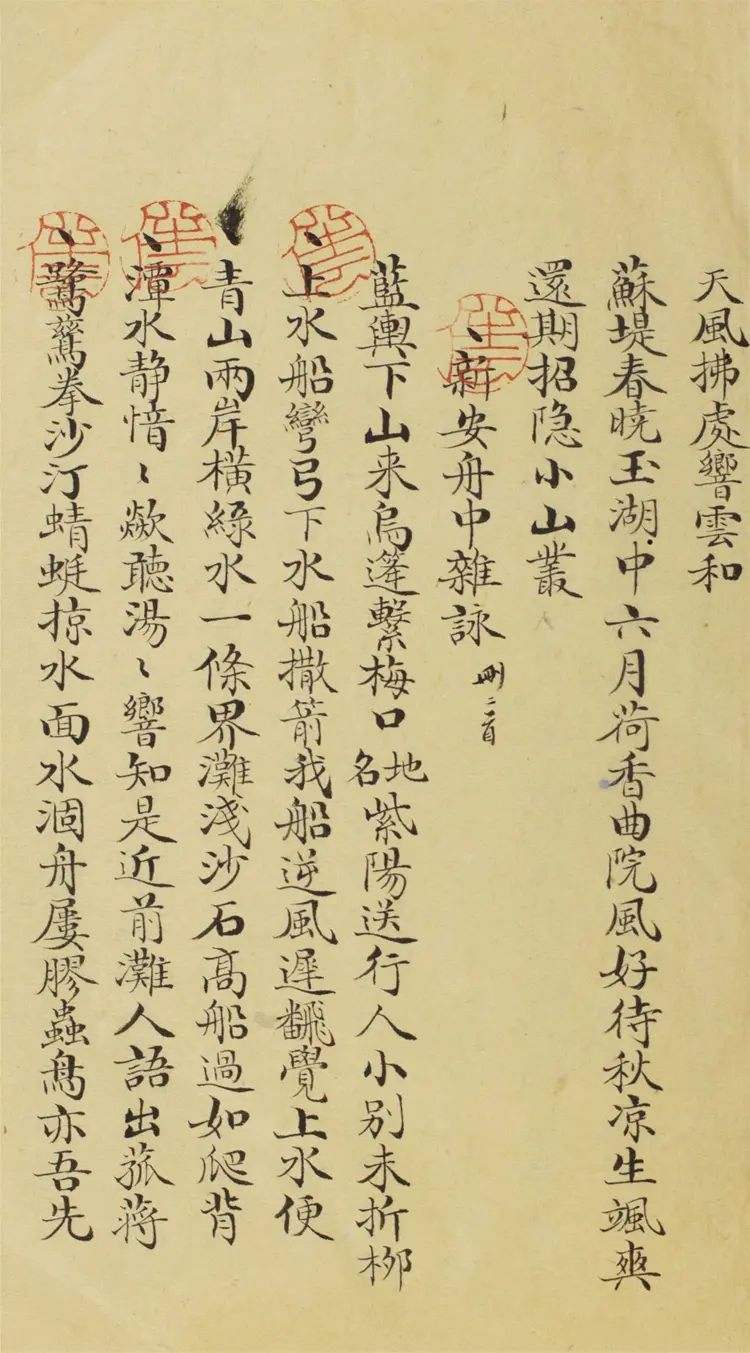 天風拂處響雲和
蘇堤春曉玉湖中六月荷香曲院風好待秋凉生颯爽
還期招隐小山叢
新安舟中雜詠 刪二首
藍輿下山来烏篷繫梅口地名紫陽送行人小别未折栁
上水船彎弓下水船撒箭我船逆風遲飜覺上水便
青山兩岸横綠水一條界灘淺沙石高船過如爬背
潭水静愔〻歘聽湯〻響知是近前灘人語出菰蔣
鷺鷥拳沙汀蜻蜓掠水面水涸舟屢膠蟲鳥亦吾先